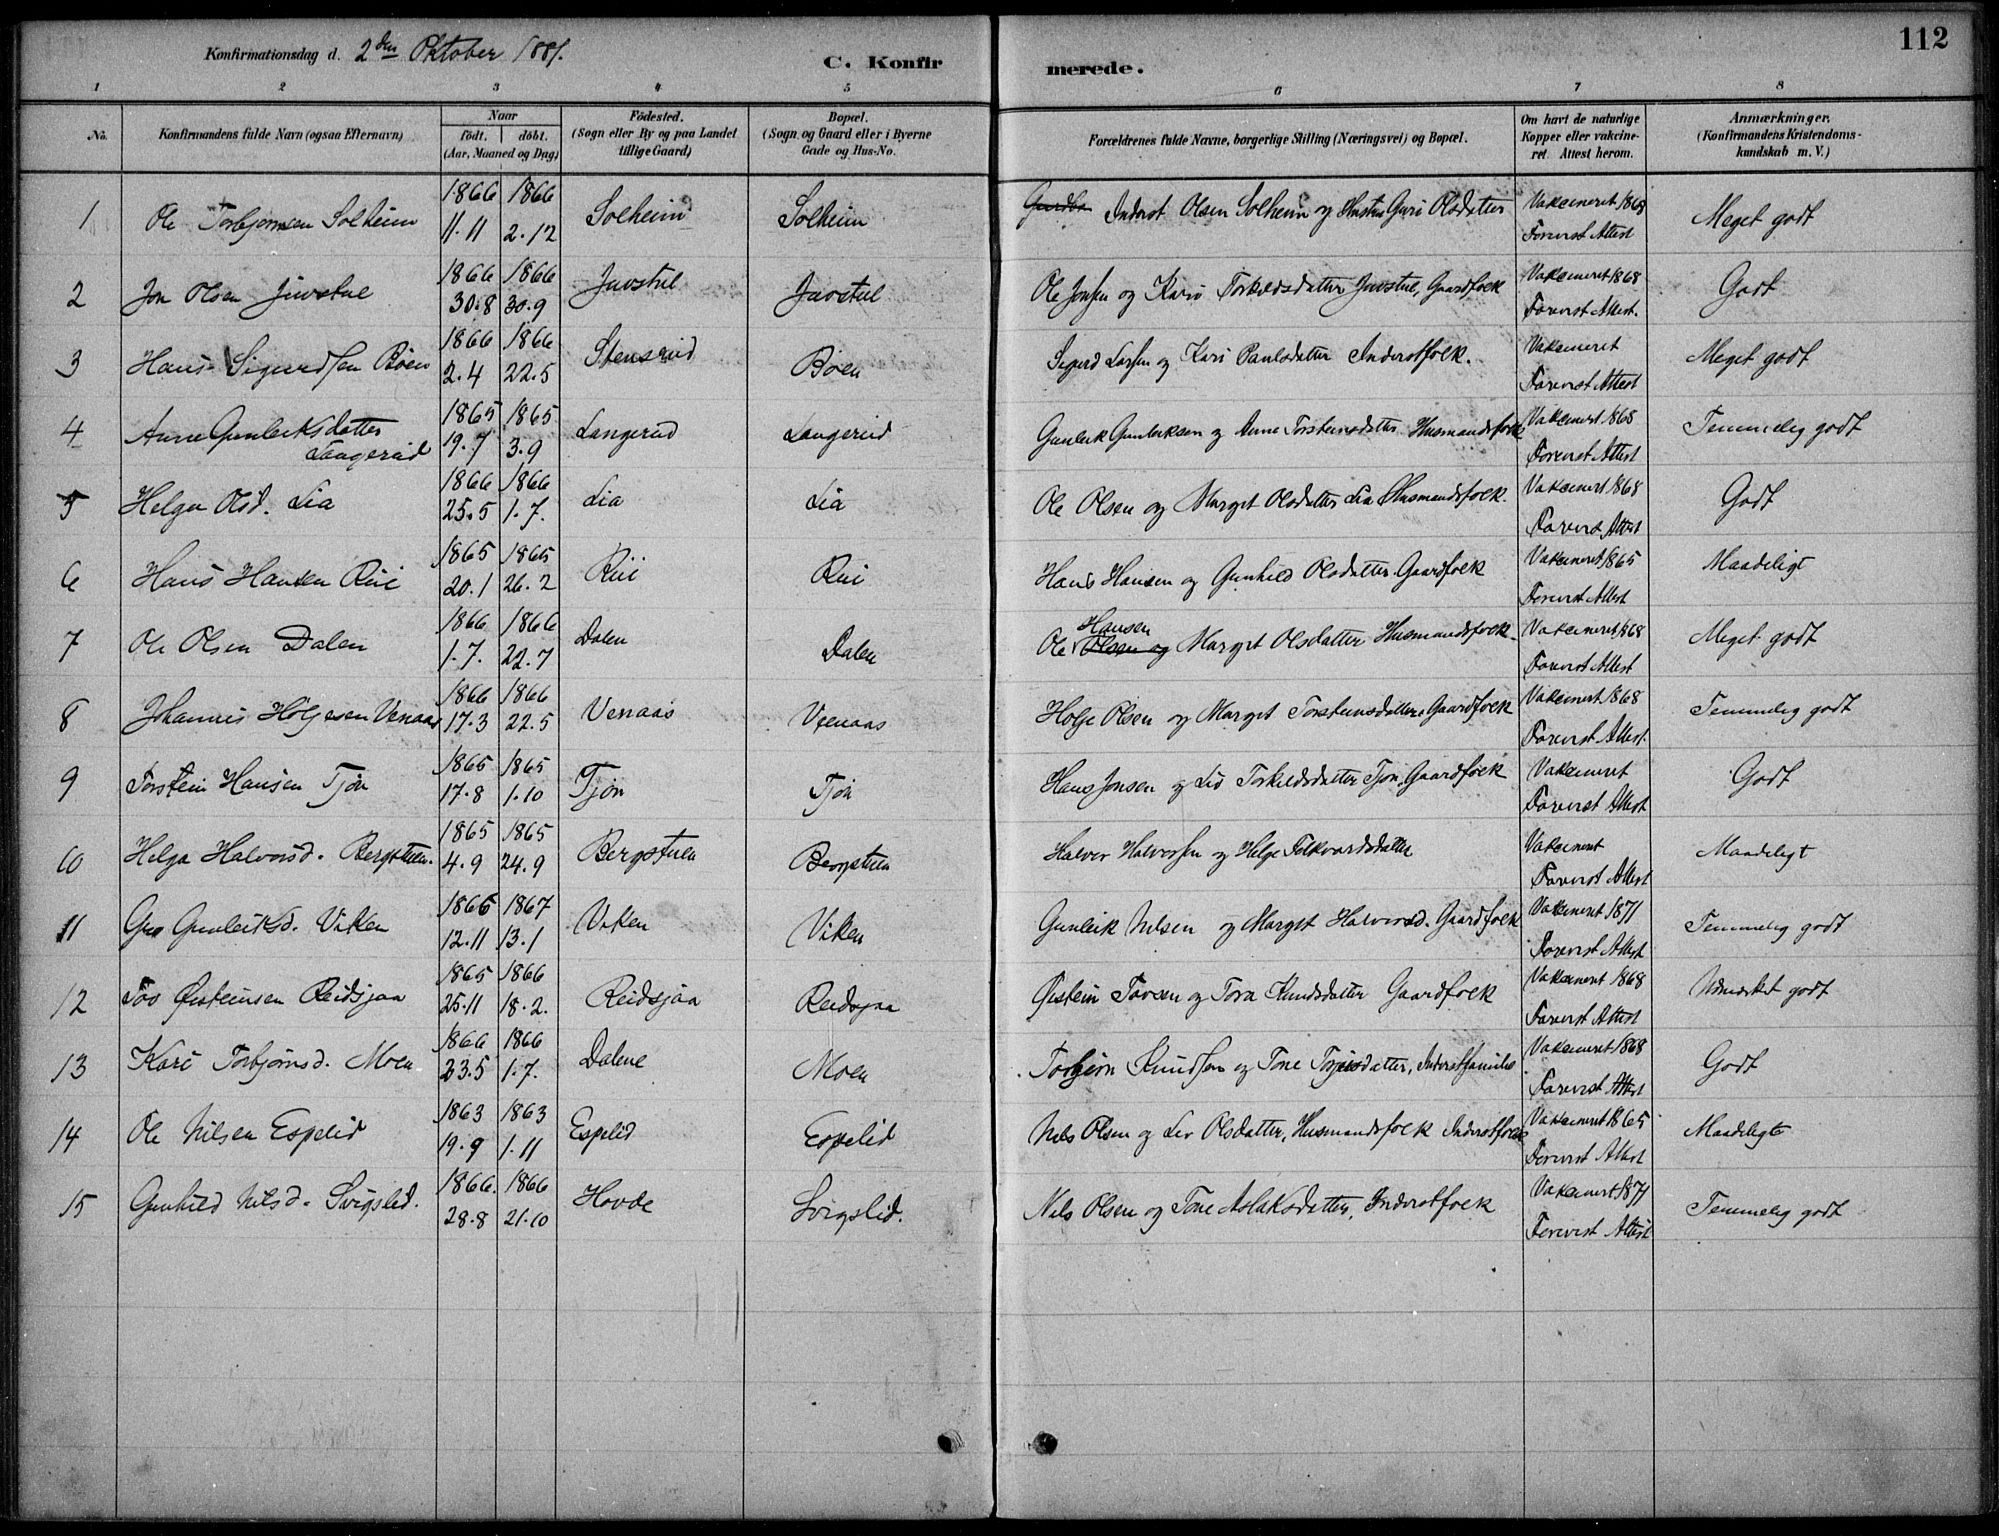 112
Konfirmationsdag d. 2den Oktober 1881.
C. Konfirmerede.
1 2 3 4 5 6 7 8
No.
Konfirmandens fulde Navn (ogsaa Efternavn)
Naar
födt. döbt.
(Aar, Maaned og Dag)
Födested.
(Sogn eller By og paa Landet
tillige Gaard)
Bopæl.
(Sogn og Gaard eller i Byerne
Gade og Hus-No.
Forældrenes fulde Navne, borgerlige Stilling (Næringsvei) og Bopæl.
Om havt de naturlige
Kopper eller vakcine-
ret Attest herom.
Anmærkninger.
(Konfirmandens Kristendoms-
kundskab m. V.)
1 Ole Torbjørnsen Solheim 1866 11.11 1866 2.12 Solheim Solheim Inderst Olsen Solheim og Hustru Guri Olsdatter Vakcineret 1868 Forevist Attest Meget godt
2 Jon Olsen Juvstul 1866 30.8 1866 30.9 Juvstul Juvstul Ole Jonsen og Kari Torkildsdatter Juvstul, Gaardfolk Vakcineret 1868 Forevist Attest. Godt
3 Hans Sigurdsen Bøen 1866 2.4 1866 22.5 Stensrud Bøen Sigurd Larsen og Kari Paulsdatter Inderstfolk. Vakcineret Forevist Attest Meget godt
4 Anne Gunleiksdatter Langerud 1865 19.7 1865 3.9 Langerud Langerud Gunleik Gunleiksen og Anne Torsteinsdatter Husmandsfolk Vakcineret 1868 Forevist Attest Temmelig godt
5 Helga Olsd. Lia 1866 25.5 1866 1.7. Lia Lia Ole Olsen og Marget Olsdatter Lia Husmandsfolk. Vakcineret 1868 Forevist Attest Godt
6 Hans Hansen Rui 1865 20.1 1865 26.2 Rui Rui Hans Hansen og Gunhild Olsdatter Gaardfolk Vakcineret 1865 Forevist Attest Maadeligt
7 Ole Olsen Dalen 1866 1.7. 1866 22.7 Dalen Dalen Ole Olsen og Hansen Marget Olsdatter Husmandsfolk Vakcineret 1868 Forevist Attest Meget godt
8 Johannes Holjesen Venaas 1866 17.3 1866 22.5 Venaas Veenaas Holje Olsen og Marget Torsteinsdatter Gaardfolk Vakcineret 1868 Forevist Attest. Temmelig godt
9 Torstein Hansen Tjøn 1865 17.8 1865 1.10 Tjøn Tjøn Hans Jonsen og Liv Torkildsdatter Tjøn, Gaardfolk Vakcineret Forevist Attest Godt
10 Helga Halvorsd. Bergstuen. 1865 4.9 1865 24.9 Bergstuen Bergstuen Halvor Halvorsen og Helge Folkvardsdatter Vakcineret Forevist Attest Maadeligt
11 Gro Gunleiksd. Viken 1866 12.11 1867 13.1 Viken Viken Gunleik Nilsen og Marget Halvorsd. Gaardfolk Vakcineret 1871 Forevist Attest Temmelig godt
12 Tov Øisteinsen Reidsjaa 1865 25.11 1866 18.2. Reidsjaa Reidsjaa Øistein Tovsen og Tora Knudsdatter Gaardfolk Vakcineret 1868 Forevist Attest Udmærket godt
13 Kari Torbjørnsd. Moen 1866 23.5 1866 1.7. Dalene Moen Torbjørn Knudsen og Tone Torjusdatter, Inderstfamilie Vakcineret 1868 Forevist Attest Godt
14 Ole Nilsen Espelid 1863 19.9 1863 1.11 Espelid Espelid Nils Olsen og Liv Olsdatter, Husmandsfolk Inderstfolk Vakcineret 1865 Forevist Attest Maadeligt
15 Gunhild Nilsd. Svigslid. 1866. 28.8 1866 21.10 Hovde Svigslid. Nils Olsen og Tone Aslaksdatter, Inderstfolk Vakcineret 1871 Forevist Attest Temmelig godt